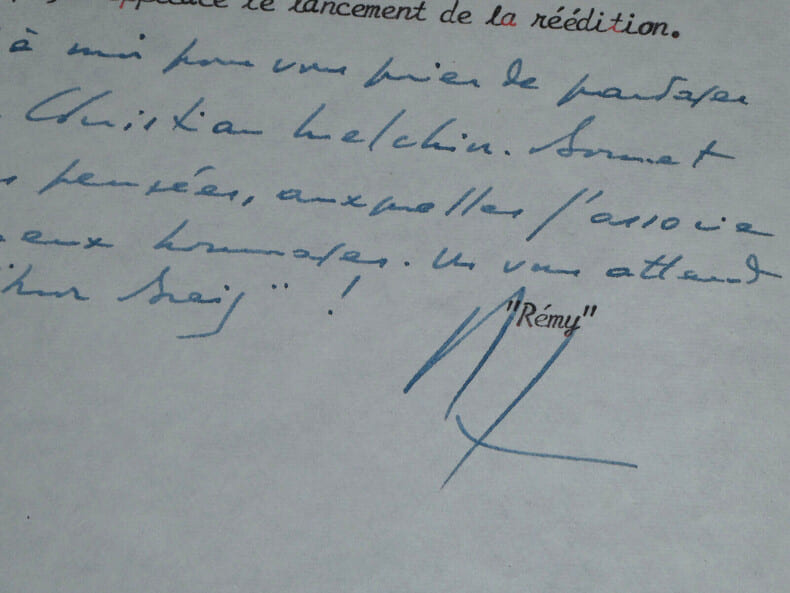 le lancement de la réédition.
à moi pour vous prier de partager
Christian Melchior. Sonnet
pensées, auxquelles j'associe
eux hommages. On vous attend
!
"Rémy"